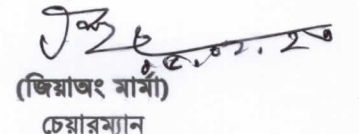 (জিয়াঅং মার্মা)
চেয়ারম্যান